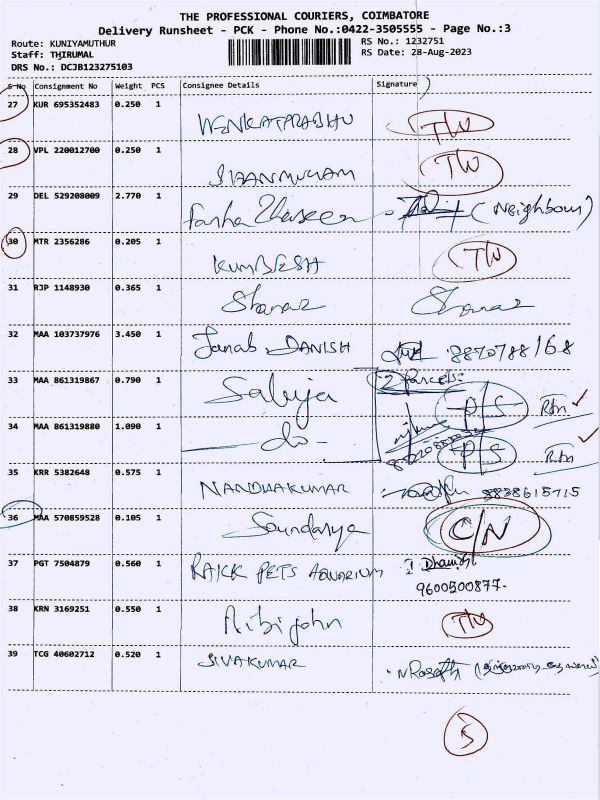 THE PROFESSIONAL COURIERS, COIMBATORE
Delivery Runsheet - PCK - Phone No.:0422-3505555 - Page No.:3
Route: KUNIYAMUTHUR RS No.: 1232751
Staff: THIRUMAL RS Date: 28-Aug-2023
DRS No.: DCJB123275103
S No Consignment No Weight PCS Consignee Details Signature
27 KUR 695352483 0.250 1 VENKATPRABHU
28 VPL 220012700 0.250 1
29 DEL 529208009 2.770 1 (Neighbour)
30 MTR 2356286 0.205 1
31 RJP 1148930 0.365 1 Shanaz Shanaz
32 MAA 103737976 3.450 1 Janab DANISH 8870788168
33 MAA 861319867 0.790 1 2 Parcels:
34 MAA 861319880 1.090 1 - do -
35 KRR 5382648 0.575 1 NANDHAKUMAR 8838615715
36 MAA 570859528 0.105 1 Soundarya C/N
37 PGT 7504879 0.560 1 PETS AQUARIUM
9600500877.
38 KRN 3169251 0.550 1 Aibijohn
39 TCG 40602712 0.520 1 SIVAKUMAR
5